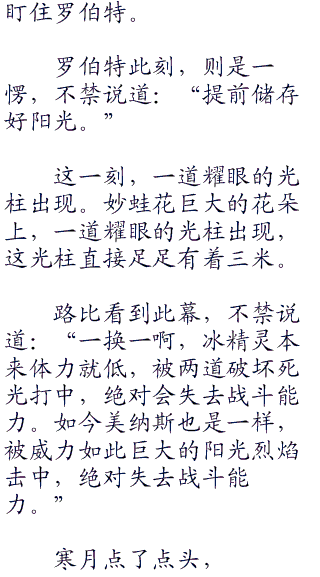 盯住罗伯特。
罗伯特此刻，则是一
愣，不禁说道：“提前储存
好阳光。”
这一刻，一道耀眼的光
柱出现。妙蛙花巨大的花朵
上，一道耀眼的光柱出现，
这光柱直接足足有着三米。
路比看到此幕，不禁说
道：“一换一啊，冰精灵本
来体力就低，被两道破坏死
光打中，绝对会失去战斗能
力。如今美纳斯也是一样，
被威力如此巨大的阳光烈焰
击中，绝对失去战斗能
力。”
寒月点了点头，